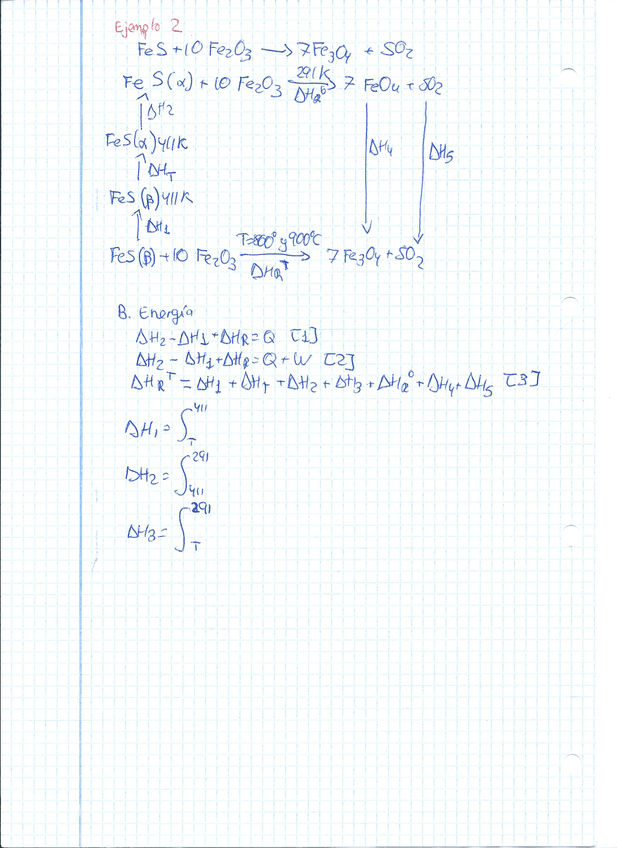 Ejemplo 2
FeS + 10 Fe₂O₃ → 7Fe₃O₄ + SO₂
Fe S(α) + 10 Fe₂O₃ 291K ΔH_R° → 7 FeO₄ + SO₂
↑ ΔH2
FeS(α) 411K
↑ ΔH_T
FeS(β) 411K
↑ ΔH1
ΔH₄
ΔH₅
FeS(β) + 10 Fe₂O₃ T=800° y 900°C ΔH_R^T → 7 Fe₃O₄ + SO₂
B. Energía
ΔH₂ - ΔH1 + ΔH_R = Q [1]
ΔH₂ - ΔH1 + ΔH_R = Q + W [2]
ΔH_R^T = ΔH1 + ΔH_T + ΔH2 + ΔH3 + ΔH_R° + ΔH4 + ΔH5 [3]
ΔH₁ = ∫_T^411
ΔH₂ = ∫_411^291
ΔH3 = ∫_T^291